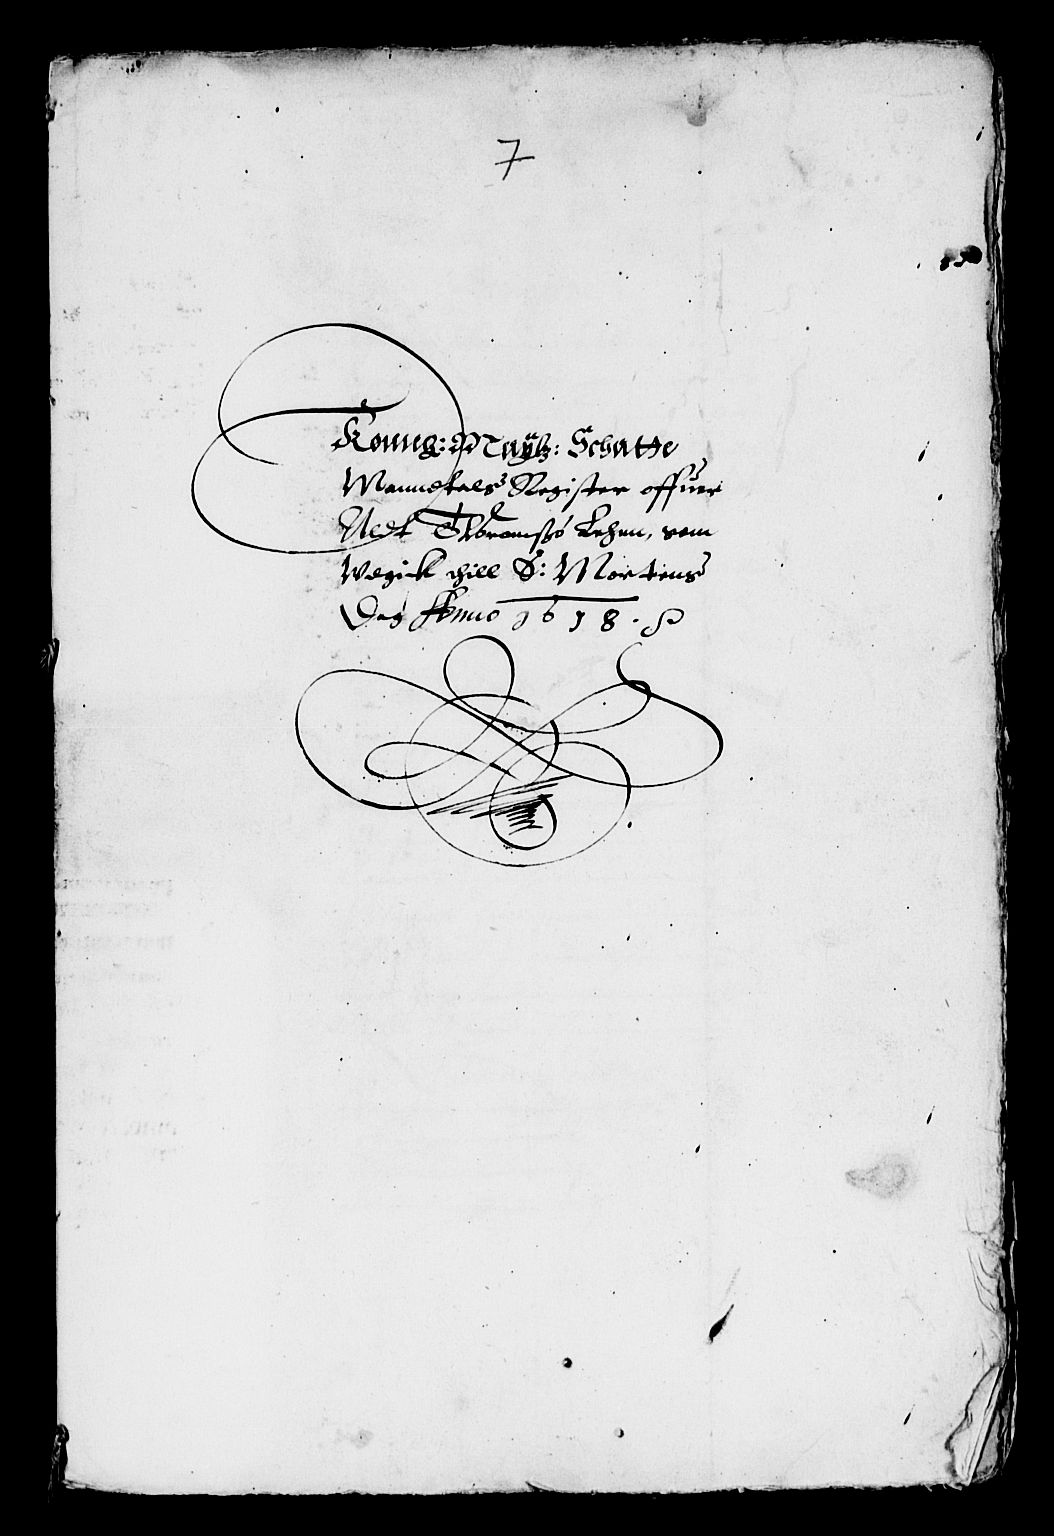 7
Konng: Maÿtz: Schatte
Manndtals Register offuer
Tromssø Lehn, som
Wdgick thill S: Mortens
Dag Anno 1618.